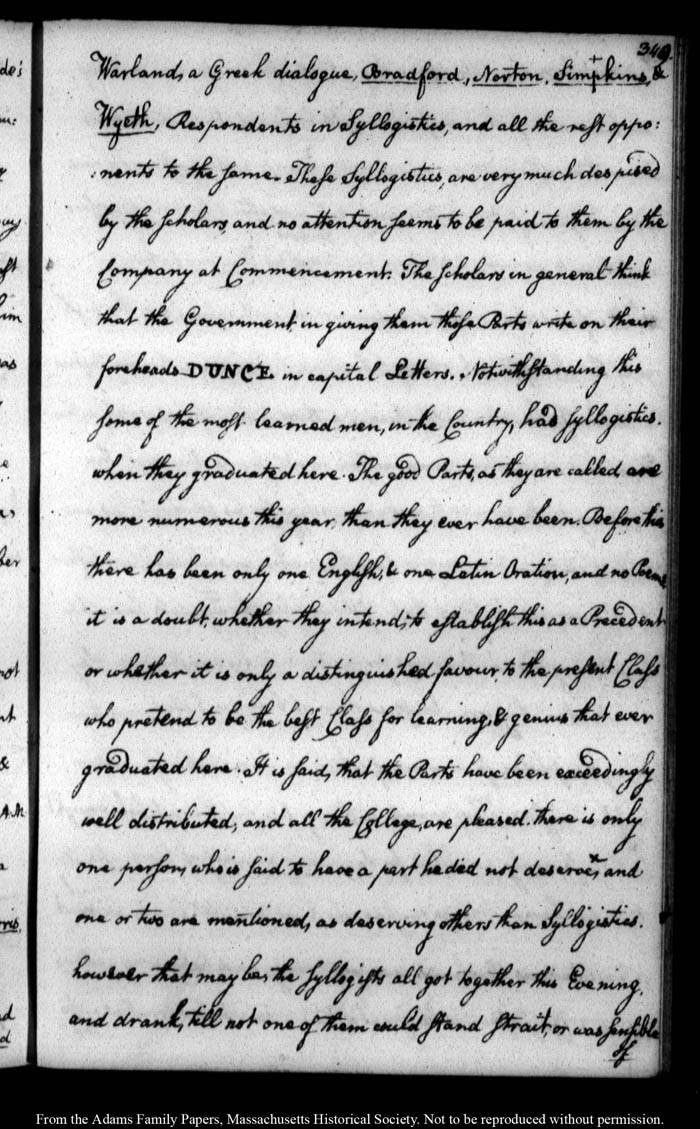 349.
Warland, a Greek dialogue, Bradford, Norton, Simpkins, &
Wyeth, Respondents in Syllogistics, and all the rest oppo:
:nents to the same. These Syllogistics, are very much despised
by the scholars, and no attention seems to be paid to them by the
Company at Commencement. The scholars in general think
that the Government in giving them those Parts write on their
foreheads DUNCE in capital Letters. Notwithstanding this
some of the most learned men, in the Country, had syllogistics.
when they graduated here. The good Parts, as they are called are
more numerous this year, than they ever have been. Before this
there has been only one English, & one Latin Oration, and no Poems
it is a doubt, whether they intend, to establish this as a Precedent
or whether it is only a distinguished favour, to the present Class
who pretend to be the best Class for learning, & genius that ever
graduated here. It is said, that the Parts have been exceedingly
well distributed, and all the College, are pleased. there is only
one person, who is said to have a part he did not deserve, and
one or two are mentioned, as deserving others than Syllogistics.
however that may be, the syllogists all got together this Evening,
and drank, till not one of them could stand strait, or was sensible
of
From the Adams Family Papers, Massachusetts Historical Society. Not to be reproduced without permission.